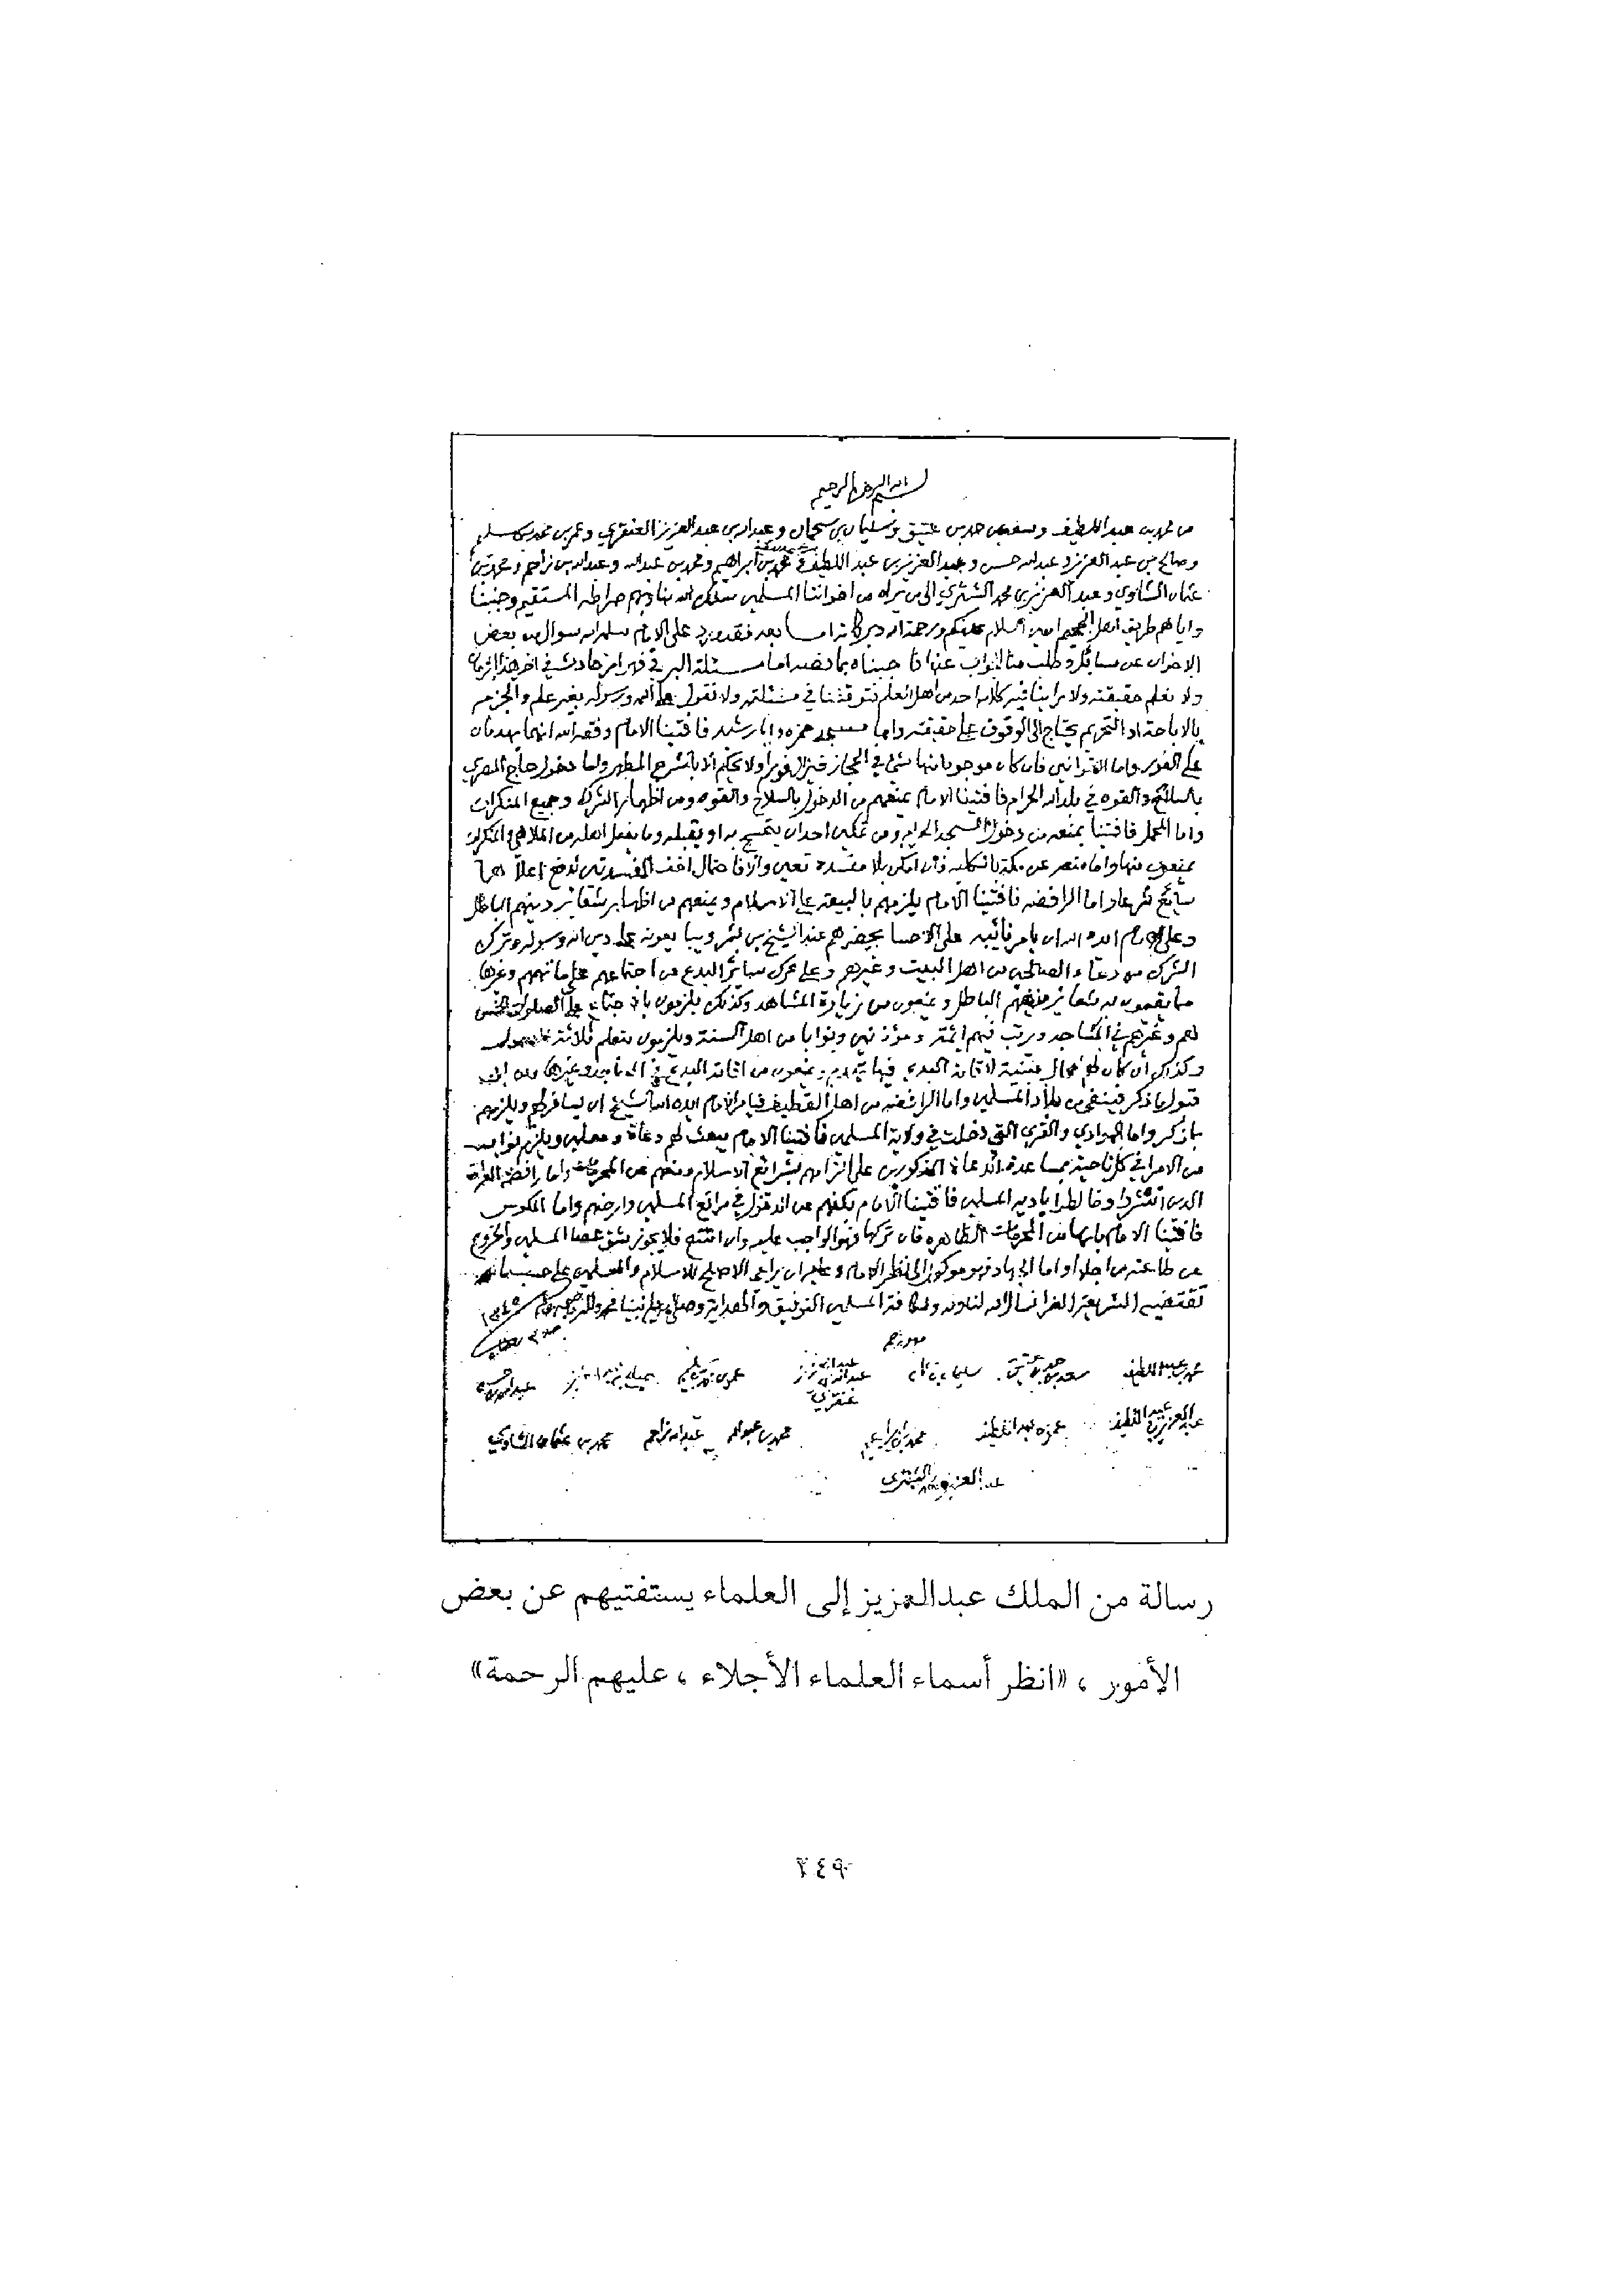 بسم الله الرحمن الرحيم
من محمد بن عبد اللطيف وسعد بن حمد بن عتيق وسليمان بن سحمان وعبد الله بن عبد العزيز العنقري وعمر بن محمد بن سليم
وصالح بن عبد العزيز وعبد الله بن حسن وعبد العزيز بن عبد اللطيف ومحمد بن ابراهيم ومحمد بن عبد الله وعبد الله بن زاحم ومحمد بن
عثمان الشاوي وعبد العزيز بن محمد الشثري الى من يراه من اخواننا المسلمين سلك الله بنا وبهم صراطه المستقيم وجنبنا
واياهم طريق اهل الجحيم امين السلام عليكم ورحمة الله وبركاته اما بعد فقد ورد على الامام سلمه الله سوال من بعض
الاخوان عن مسائل وطلب منا الجواب عنها فاجبناه بما نصه اما مسئلة البرقي فهو امر حادث في اخر هذا الزمان
ولا نعلم حقيقته ولا راينا فيه كلاما لاحد من اهل العلم فتوقفنا في مسئلته ولا نقول على الله ورسوله بغير علم والجزم
بالاباحة او التحريم يحتاج الى الوقوف على حقيقته واما مسجد حمزه وابا رشيد فافتينا الامام وفقه الله انهما يهدمان
على الفور واما القوانين فان كان موجود منها شئ في الحجاز فيزال فورا ولا يحكم الا بالشرع المطهر واما دخول حاج المصري
بالسلاح والقوه في بلد الله الحرام فافتينا الامام بمنعهم من الدخول بالسلاح والقوه ومن اظهار الشرك وجميع المنكرات
واما المحمل فافتينا بمنعه من دخول المسجد الحرام ومن تمكين احد ان يتمسح به او يقبله وما يفعله اهله من الملاهي والمنكرات
يمنعون منها واما منعه عن مكة بالكليه فان امكن بلا مفسده تعين والا فاحتمال اخف المفسدتين لدفع اعلاهما
سائغ شرعا واما الرافضه فافتينا الامام يلزمهم بالبيعة على الاسلام ويمنعهم من اظهار شعائر دينهم الباطل
وعلى الامام ايده الله ان يامر نائبه على الاحسا يحضرهم عند الشيخ بن بشر ويبايعونه على دين الله ورسوله وترك
الشرك من دعاء الصالحين من اهل البيت وغيرهم وعلى ترك سائر البدع من اجتماعهم على ماتمهم وغيرها
مما يقيمون به شعائر مذهبهم الباطل ويمنعون من زيارة المشاهد وكذلك يلزمون بالاجتماع على الصلوات الخمس
هم وغيرهم في المساجد ويرتب فيهم ائمة ومؤذنين ونوابا من اهل السنة ويلزمون بتعلم ثلاثة الاصول
وكذلك ان كان لهم محال مبنية لاقامة البدع فيها تهدم ويمنعون من اقامة البدع في المساجد وغيرها ومن ابى
قبول ما ذكر فينفى من بلاد المسلمين واما الرافضه من اهل القطيف فيامر الامام ايده الله الشيخ ان يسافر لهم ويلزمهم
بما ذكر واما البوادي والقرى التي دخلت في ولاية المسلمين فافتينا الامام يبعث لهم دعاة ومعلمين ويلزم نوابه
من الامرا في كل ناحية بمساعدة الدعاة المذكورين على الزامهم بشرائع الاسلام ومنعهم من المحرمات واما رافضة العراق
الذين انتشروا وخالطوا باديه المسلمين فافتينا الامام بكفهم عن الدخول في مراتع المسلمين وارضهم واما المكوس
فافتينا الامام بانها من المحرمات الظاهره فان تركها فهو الواجب عليه وان امتنع فلا يجوز شق عصا المسلمين والخروج
عن طاعته من اجلها واما الجهاد فهو موكول الى نظر الامام وعليه ان يراعي الاصلح للاسلام والمسلمين على حسب ما
تقتضيه الشريعة الغرا نسال الله لنا وله ولكافة المسلمين التوفيق والهداية وصلى الله على نبينا محمد واله وصحبه وسلم
محمد بن عبد اللطيف سعد بن حمد بن عتيق سليمان بن سحمان عبد الله بن عبد العزيز عنقري عمر بن محمد بن سليم صالح بن عبد العزيز عبد الله بن حسن
عبد العزيز بن عبد اللطيف عمر بن عبد اللطيف محمد بن ابراهيم محمد بن عبد الله عبد الله بن زاحم محمد بن عثمان الشاوي
عبد العزيز الشثري
رسالة من الملك عبدالعزيز إلى العلماء يستفتيهم عن بعض
الأمور ، «انظر أسماء العلماء الأجلاء ، عليهم الرحمة»
٢٤٩